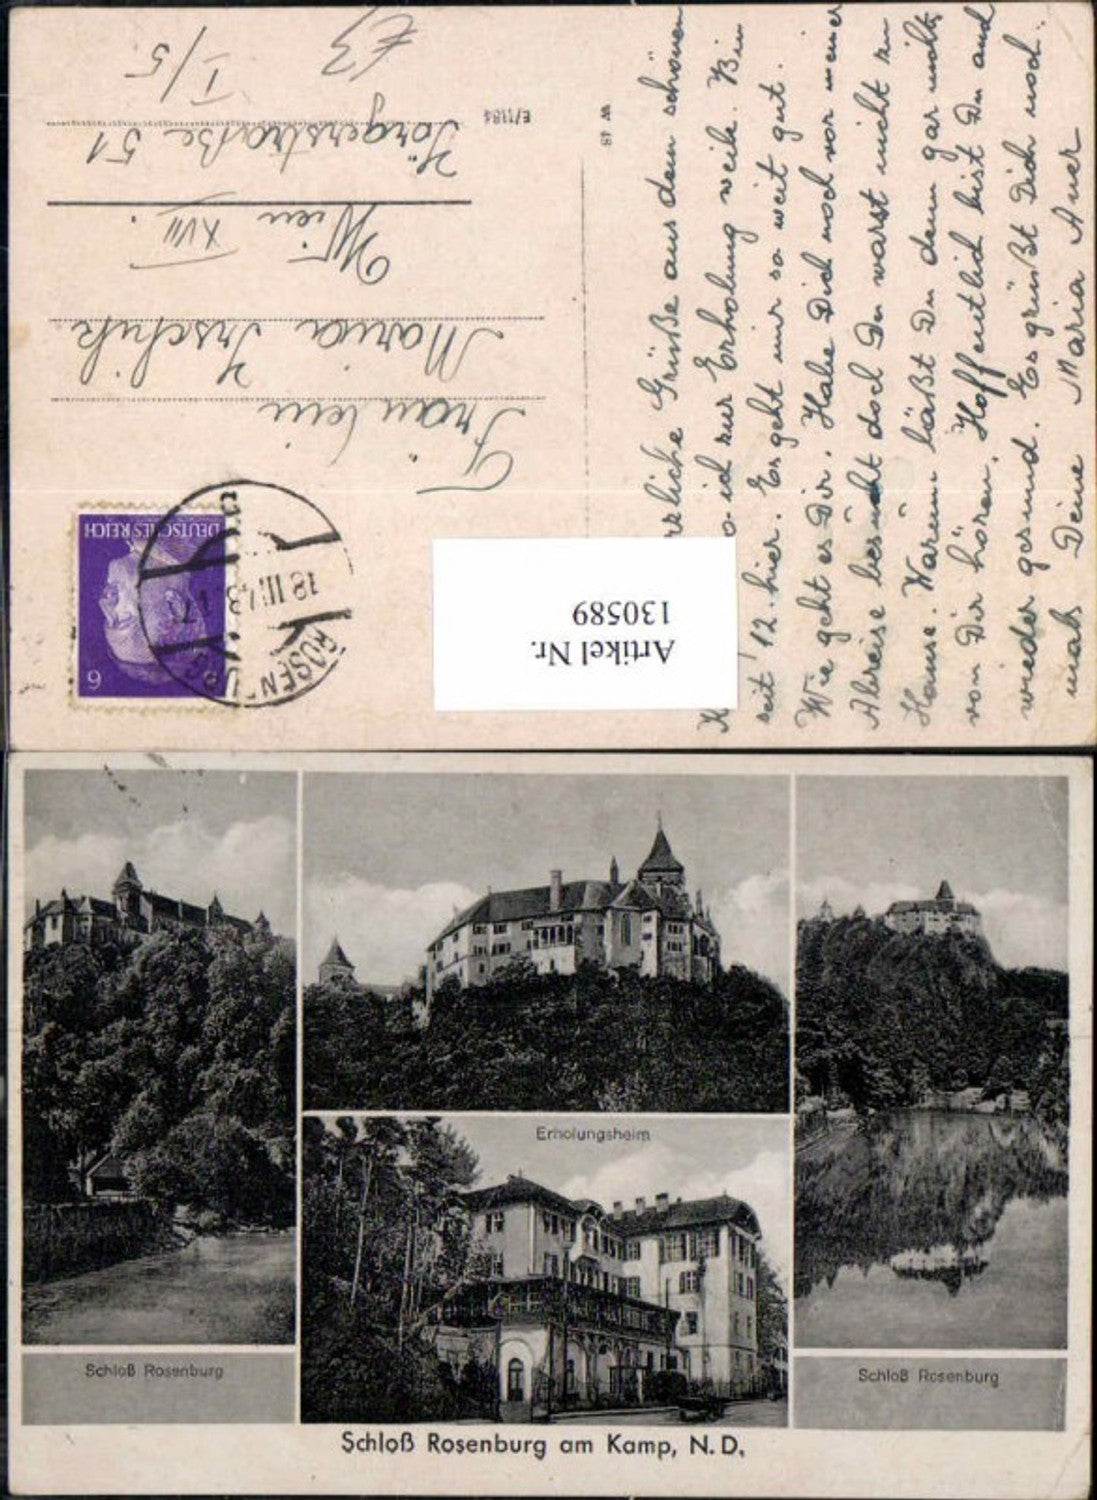 Herzliche Grüße aus dem schönen
wo ich zur Erholung weile. Bin
seit 12. hier. Es geht mir so weit gut.
Wie geht es Dir. Habe Dich noch vor meiner
Abreise besucht doch Du warst nicht zu
Hause. Warum läßt Du denn gar nichts
von Dir hören. Hoffentlich bist Du auch
wieder gesund. Es grüßt Dich noch-
mals Deine Maria Auer
W 48
E/1184
DEUTSCHES REICH
6
ROSENBURG
18.III.43.17
Fräulein
Maria Irschik
Wien XVII.
Jörgerstraße 51
I/5
Artikel Nr.
130589
Erholungsheim
Schloß Rosenburg
Schloß Rosenburg
Schloß Rosenburg am Kamp, N. D.